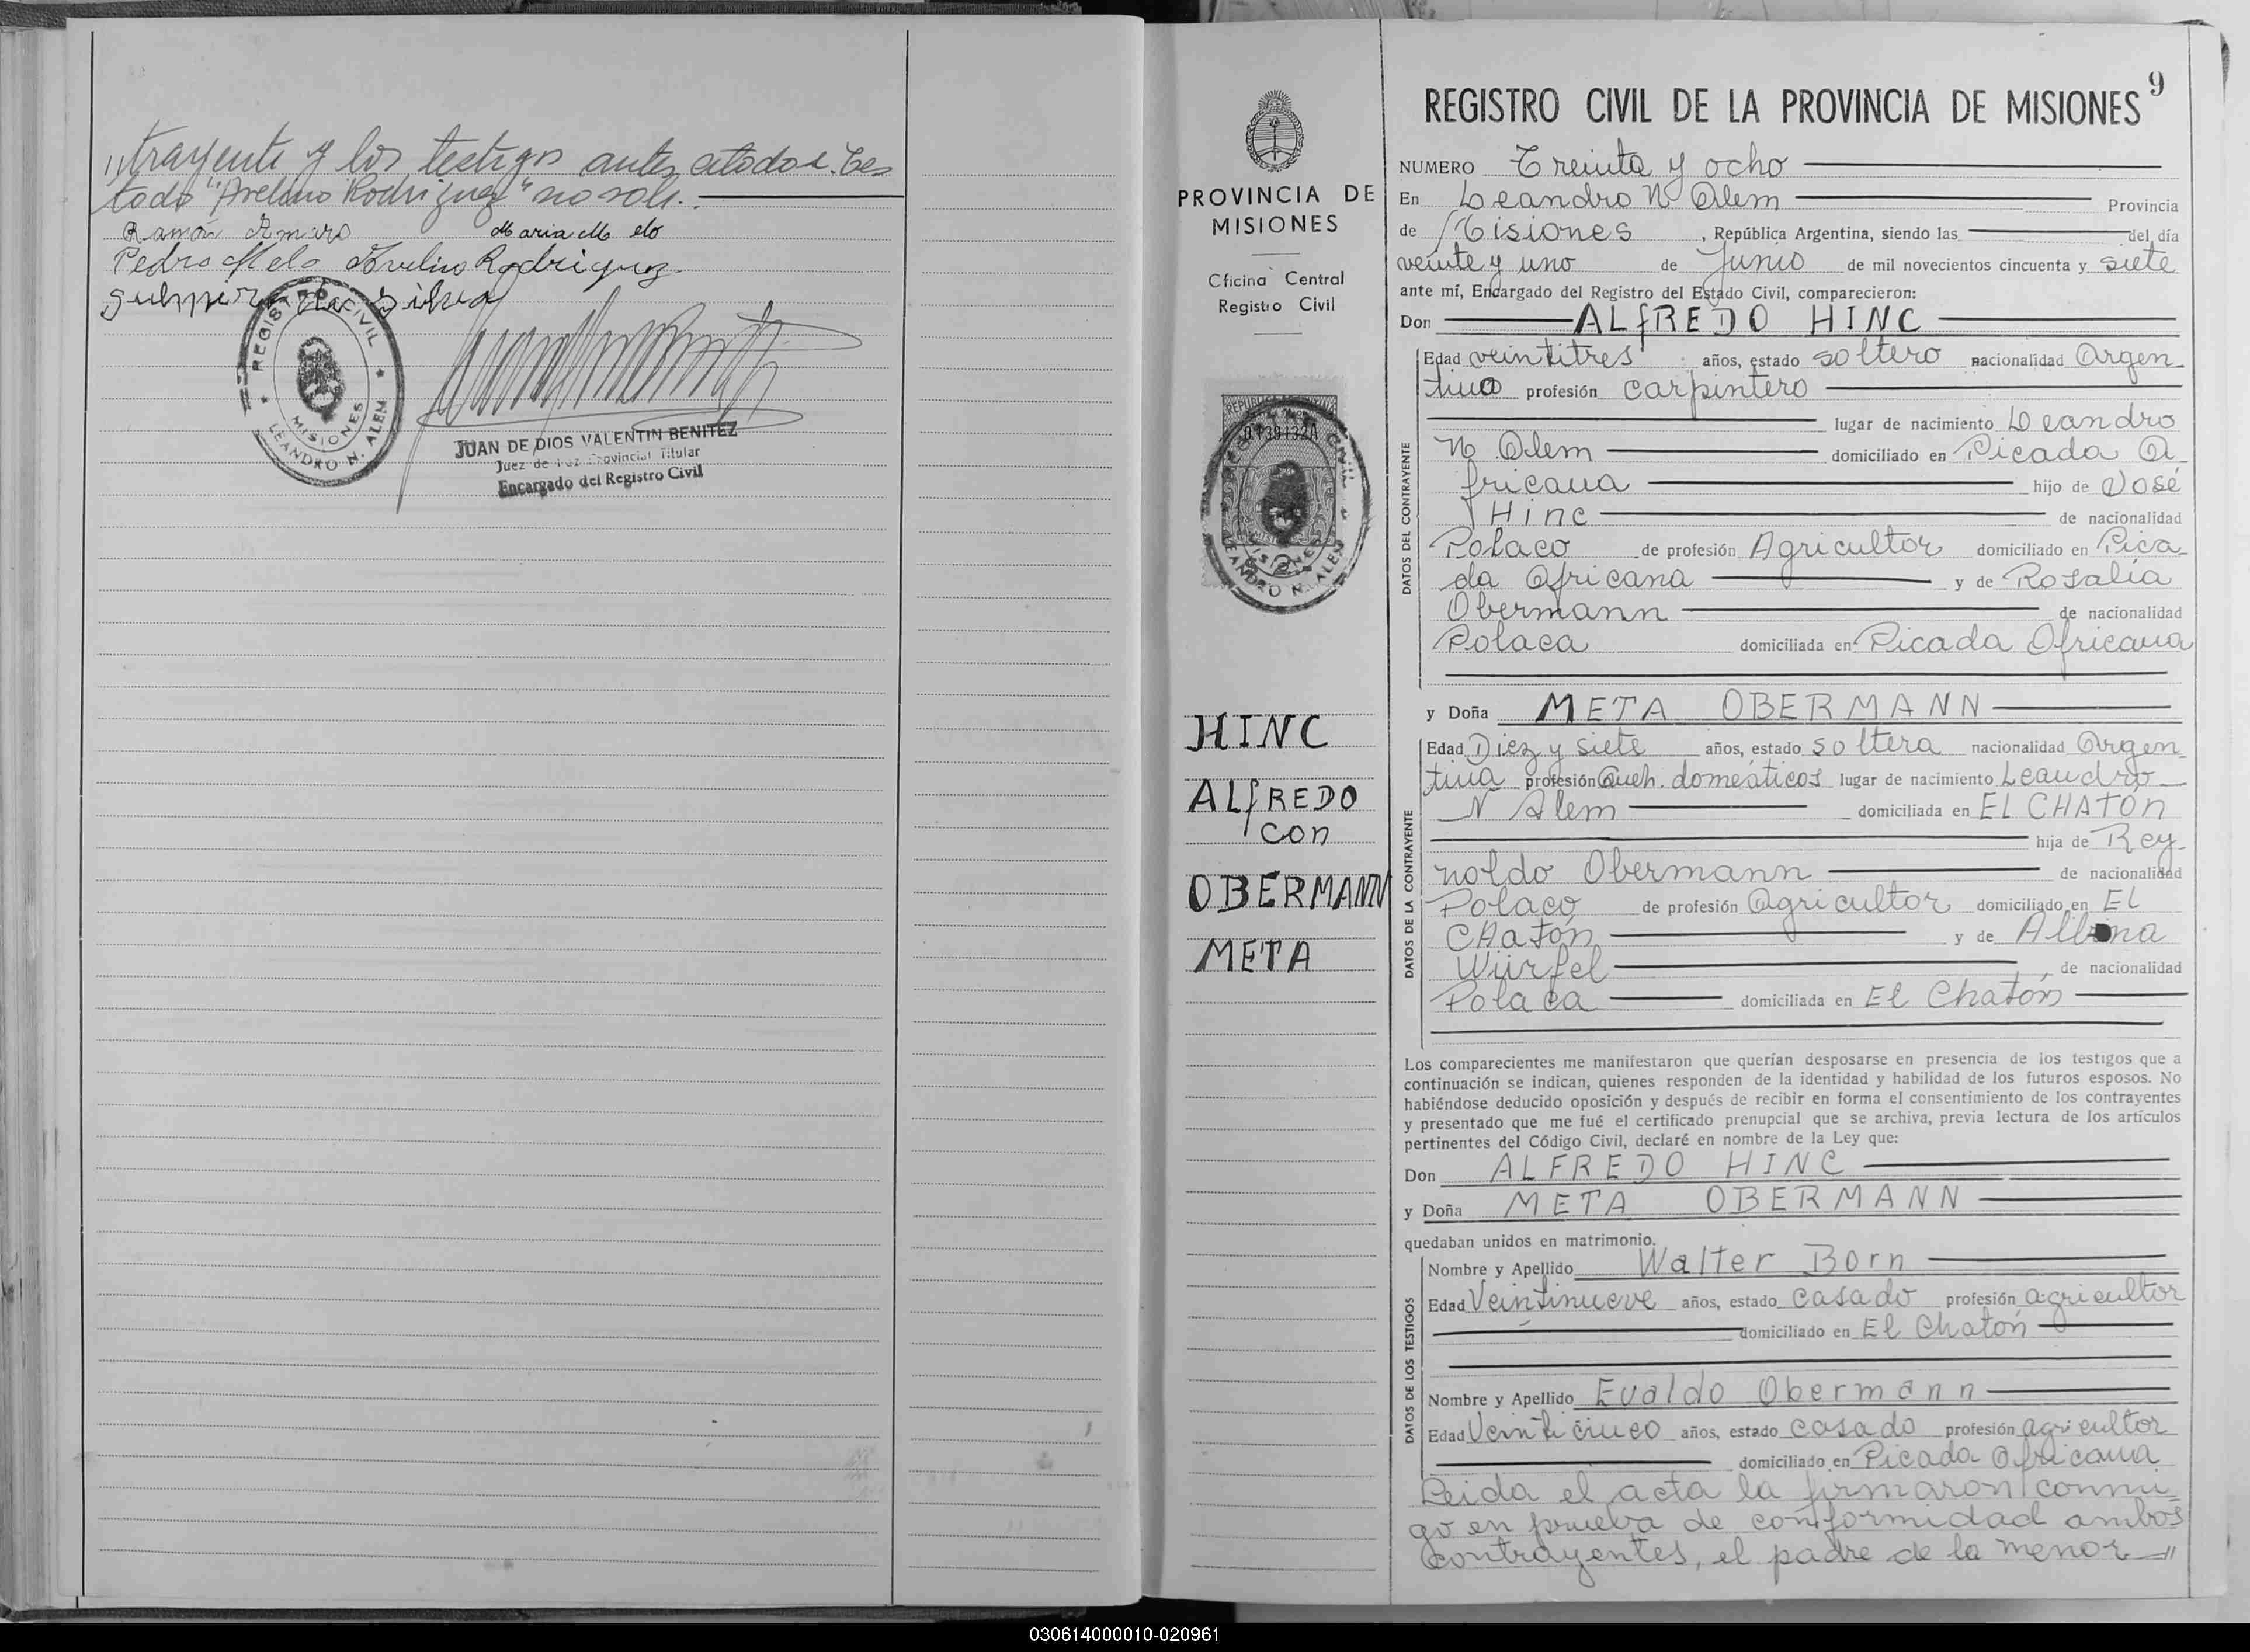 //trayente y los testigos antes citados. Tes
tado "Avelino Rodriguez" no vale.
Ramón Amaro Maria Melo
Pedro Melo Avelino Rodriguez
da Silva
REGISTRO CIVIL
MISIONES
LEANDRO N. ALEM
JUAN DE DIOS VALENTIN BENITEZ
Juez de Paz Provincial Titular
Encargado del Registro Civil
PROVINCIA DE
MISIONES
Oficina Central
Registro Civil
HINC
ALfREDO
con
OBERMANN
META
9
REGISTRO CIVIL DE LA PROVINCIA DE MISIONES
NUMERO Treinta y ocho
En Leandro N Alem Provincia
de Misiones, República Argentina, siendo las del día
veinte y uno de Junio de mil novecientos cincuenta y siete
ante mí, Encargado del Registro del Estado Civil, comparecieron:
Don ALfREDO HINC
DATOS DEL CONTRAYENTE
Edad veintitres años, estado soltero nacionalidad Argen-
tino profesión carpintero
lugar de nacimiento Leandro
N Alem domiciliado en Picada A-
fricana hijo de José
Hinc de nacionalidad
Polaco de profesión Agricultor domiciliado en Pica-
da Africana y de Rosalia
Obermann de nacionalidad
Polaca domiciliada en Picada Africana
y Doña META OBERMANN
DATOS DE LA CONTRAYENTE
Edad Diez y siete años, estado soltera nacionalidad Argen-
tina profesión Queh. domésticos lugar de nacimiento Leandro
N Alem domiciliada en EL CHATÓN
hija de Rey-
noldo Obermann de nacionalidad
Polaco de profesión Agricultor domiciliado en EL
CHatón y de Albina
Würfel de nacionalidad
Polaca domiciliada en El Chatón
Los comparecientes me manifestaron que querían desposarse en presencia de los testigos que a
continuación se indican, quienes responden de la identidad y habilidad de los futuros esposos. No
habiéndose deducido oposición y después de recibir en forma el consentimiento de los contrayentes
y presentado que me fué el certificado prenupcial que se archiva, previa lectura de los artículos
pertinentes del Código Civil, declaré en nombre de la Ley que:
Don ALFREDO HINC
y Doña META OBERMANN
quedaban unidos en matrimonio.
DATOS DE LOS TESTIGOS
Nombre y Apellido Walter Born
Edad Veintinueve años, estado casado profesión agricultor
domiciliado en El Chatón
Nombre y Apellido Evaldo Obermann
Edad Veinticinco años, estado casado profesión agricultor
domiciliado en Picada Africana
Leida el acta la firmaron conmi-
go en prueba de conformidad ambos
contrayentes, el padre de la menor //
030614000010-020961